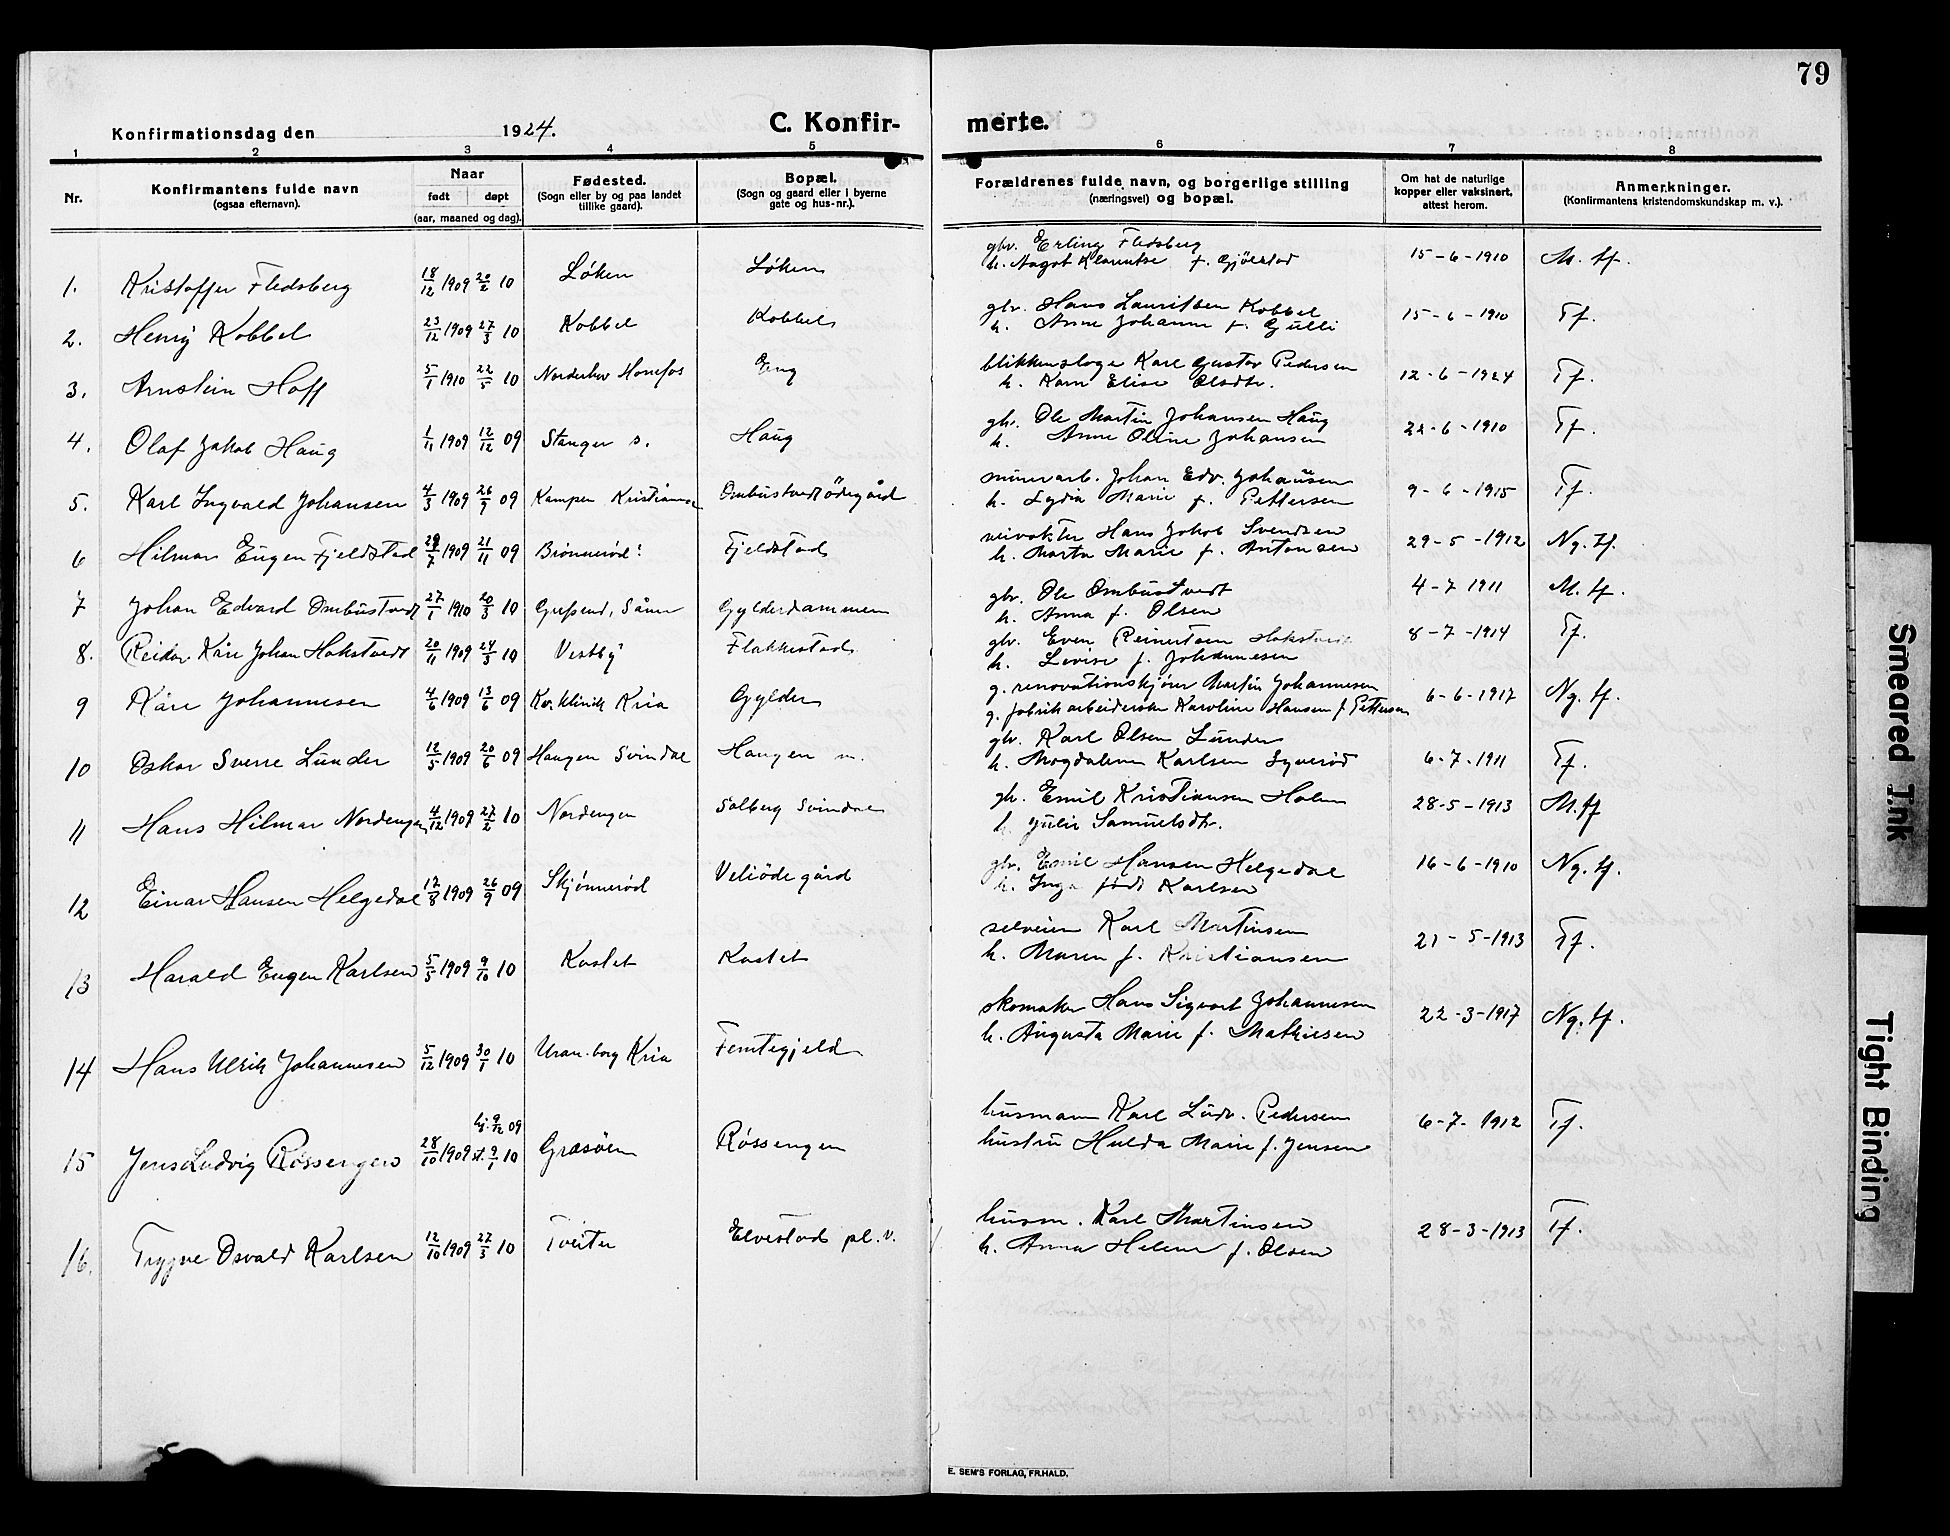 79
Konfirmationsdag den 1924. C. Konfir- merte.
1 2 3 4 5 6 7 8
Nr. Konfirmantens fulde navn (ogsaa efternavn). Naar født døpt (aar, maaned og dag). Fødested. (Sogn eller by og paa landet tillike gaard). Bopæl. (Sogn og gaard eller i byerne gate og hus-nr.). Forældrenes fulde navn, og borgerlige stilling (næringsvei) og bopæl. Om hat de naturlige kopper eller vaksinert, attest herom. Anmerkninger. (Konfirmantens kristendomskundskap m. v.).
1. Kristoffer Fledsberg 18/12 1909 20/2 10 Løken Løken gbr. Erling Fledsberg 15-6-1910 M. tf.
h. Klarentse f. Gjölstad
2. Henry Kobbel 23/12 1909 27/3 10 Kobbel Kobbel gbr. Hans Lauritsen Kobbel 15-6-1910 Tf.
h. Anne Johanne f. Gulli
3. Arnstein Hoff 5/1 1910 22/5 10 Norderhov Hønefos Eng blikkenslage Karl Gustav Pedersen 12-6-1924 Tf.
h. Karn Elise Olsdtr.
4. Olaf Jakob Haug 1/11 1909 12/12 09 Stanger s. Haug gbr. Ole Martin Johansen Haug 22-6-1910 Tf.
h. Anne Oline Johansen
5. Karl Ingvald Johansen 4/3 1909 26/9 09 Kampen Kristiania Ombustvedtödegård minerarb. Johan Edv. Johansen 9-6-1915 Tf.
h. Lydia Marie f. Pettersen
6 Hilmar Eugen Fjeldstad 29/7 1909 21/11 09 Brönnerød Fjeldstad veivokter Hans Jakob Svendsen 29-5-1912 Ng. tf.
h. Marta Marie f. Antonsen
7 Johan Edvard Ombustvedt 27/1 1910 20/3 10 Såner Gylderdammen gbr. Ole Ombustvedt 4-7 1911 M. tf.
h. Anna f. Olsen
8. Reidar Kåre Johan Hakstvedt 20/11 1909 24/3 10 Vestby Flakkestad gbr. Even Reinertsen Hakstvedt 8-7-1914 Tf.
h. Levise f. Johannesen
9 Kåre Johannesen 4/6 1909 13/6 09 Kv. klinik Kria Gylder g. renovationskjører Martin Johannesen 6-6-1917 Ng. tf.
g. fabrikarbeiderske Karoline Hansen f Pettersen
10 Oskar Sverre Lunder 12/5 1909 20/6 09 Haugen Svindal Haugen n. gbr. Karl Olsen Lunder 6-7-1911 Tf.
h. Magdalene Karlsen Syverød
11 Hans Hilmar Nordengen 4/12 1909 27/2 10 Nordengen Solberg Svindal gbr. Emil Kristiansen Holm 28-5-1913 M.tf
h. Julie Samuelsdtr.
12 Einar Hansen Helgedal 17/8 1909 26/9 09 Skjønnerød Veliödegård gbr. Emil Hansen Helgedal 16-6-1910 Ng. tf.
h. Inga født Karlsen
13 Harald Eugen Karlsen 5/5 1909 9/10 10 Kastet Kastet selveier Karl Martinsen 21-5-1913 Tf.
h. Maren f. Kristiansen
14 Hans Ulrik Johannesen 5/12 1909 30/1 10 Uran.borg Kria Femtegjeld skomaker Hans Sigvart Johannesen 22-3-1917 Ng. tf.
h. Augusta Marie f. Mathiesen
15 Jens Ludvig Røssengen 28/10 1909 hj. 9/12 09 st. 9/1 10 Grasöen Røssengen husmann Karl Ludv. Pedersen 6-7-1912 Tf.
hustru Hulda Marie f. Jensen
16. Trygve Osvald Karlsen 12/10 1909 27/3 10 Tveiter Elvestad pl. v. husm. Karl Martinsen 28-3-1913 Tf.
h. Anna Helene f. Olsen
E. SEM'S FORLAG, FR.HALD.
Smeared Ink
Tight Binding